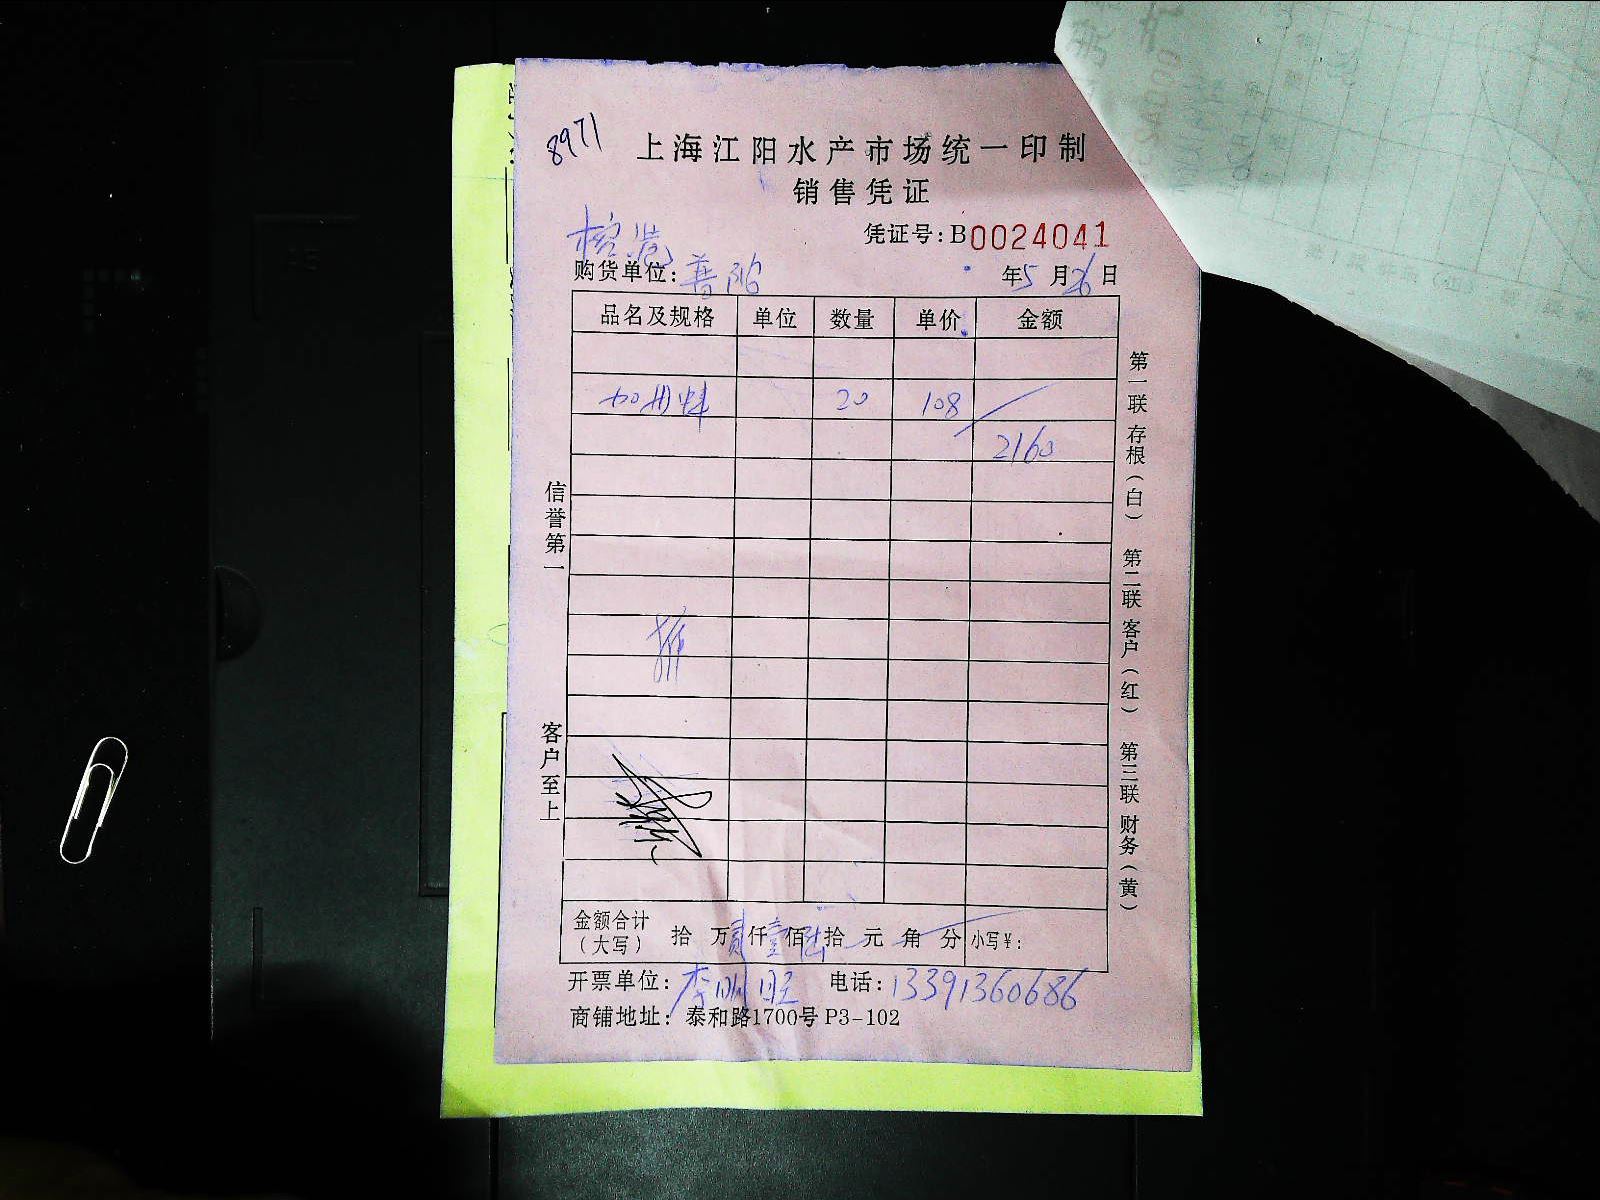 8971
上海江阳水产市场统一印制
销售凭证
凭证号:B0024041
购货单位:普陀
年5月26日
品名及规格 单位 数量 单价 金额
20 108
2160
信誉第一
客户至上
第一联 存根（白）
第二联 客户（红）
第三联 财务（黄）
金额合计（大写） 拾 万贰仟壹佰陆拾 元 角 分 小写¥:
开票单位: 电话:13391360686
商铺地址: 泰和路1700号 P3-102